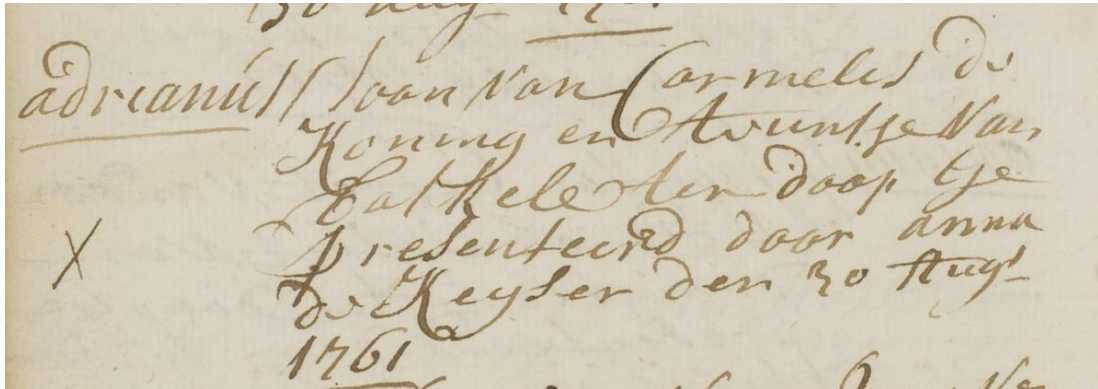 30 Aug
adrianus / soon van Cornelis de
Koning en Teuntje van
ter doop ge
presenteerd door anna
de Keyser den 30 Augs
1761